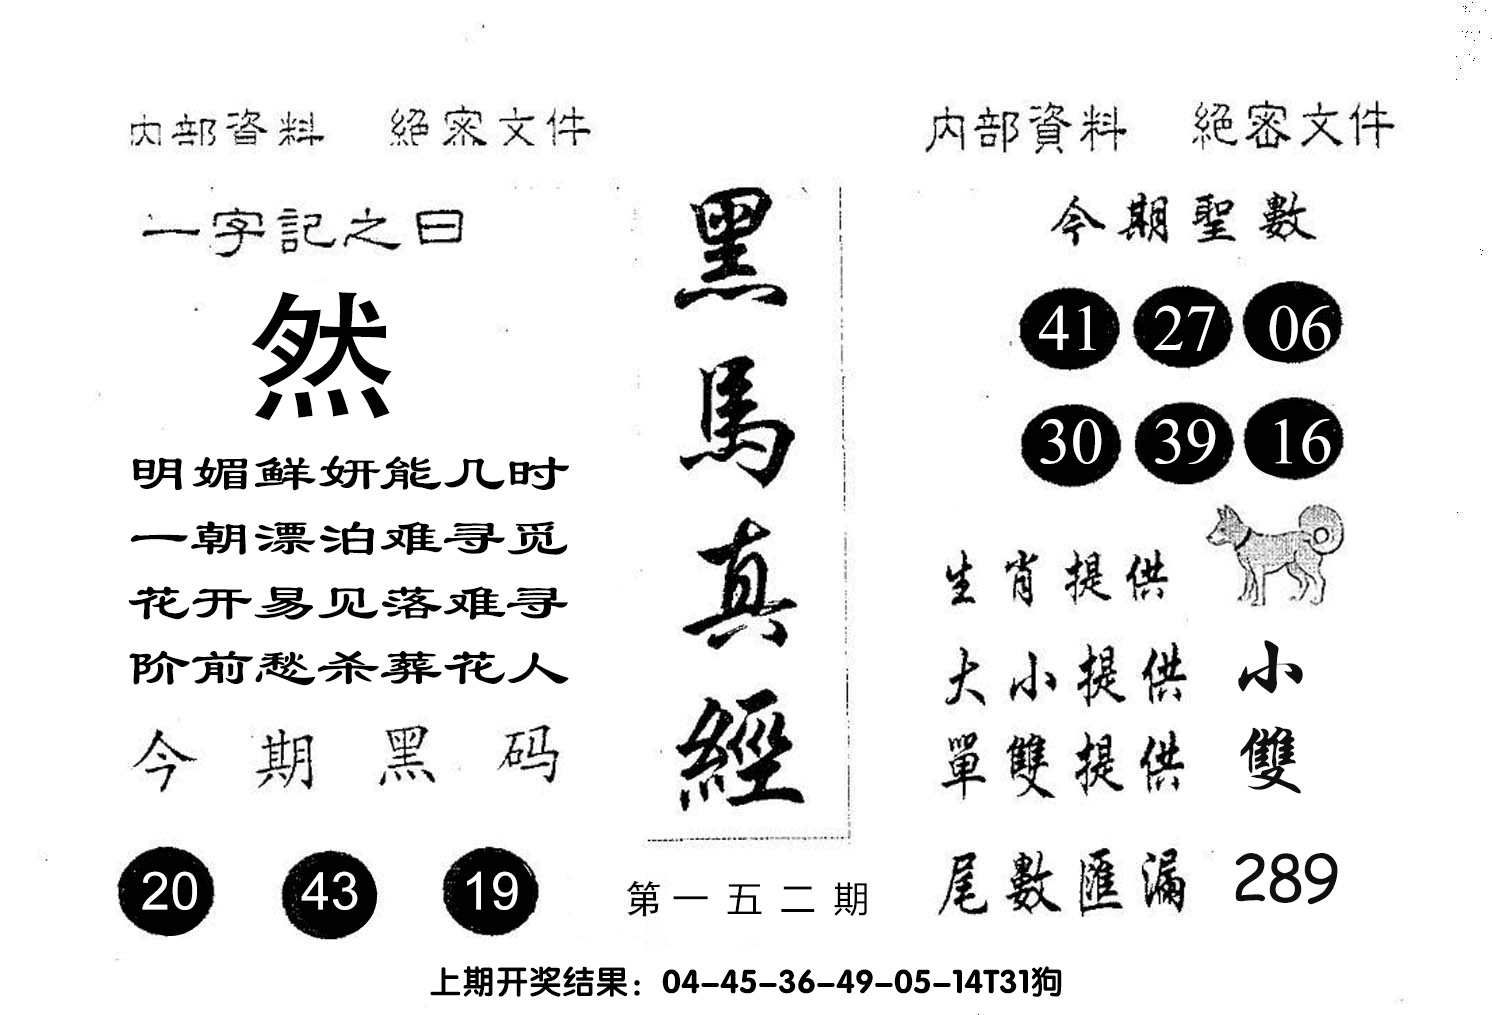 内部資料 絕密文件
一字記之曰
然
明媚鲜妍能几时
一朝漂泊难寻觅
花开易见落难寻
阶前愁杀葬花人
今期黑码
20 43 19
黑馬真經
第一五二期
内部資料 絕密文件
今期聖數
41 27 06
30 39 16
生肖提供
大小提供 小
單雙提供 雙
尾數匯漏 289
上期开奖结果：04-45-36-49-05-14T31狗